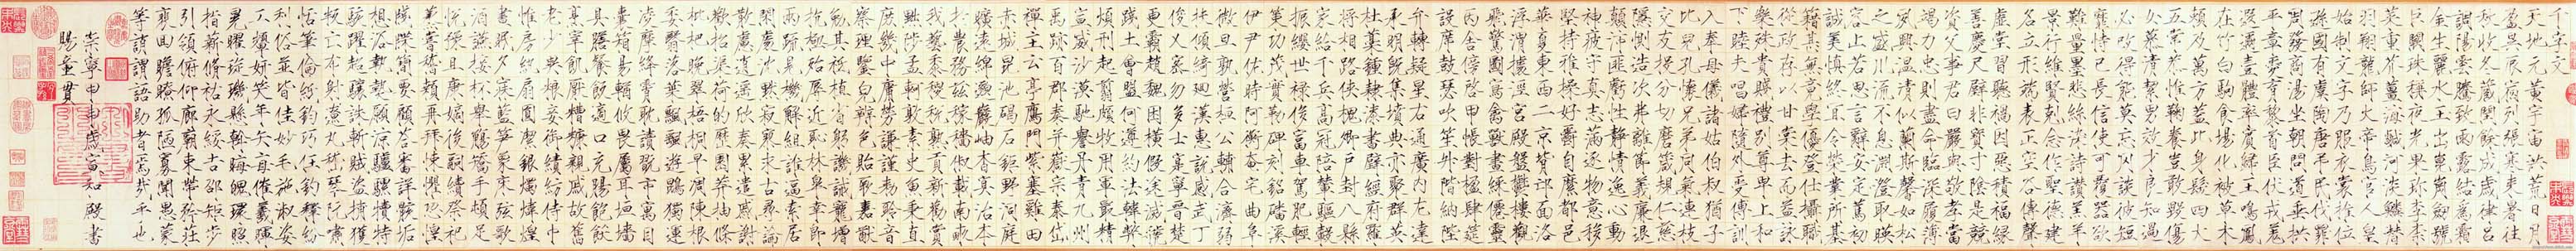 千字文
天地元黃宇宙洪荒日月
盈昃辰宿列張寒來暑往
秋收冬藏閏餘成歲律呂
調陽雲騰致雨露結為霜
金生麗水玉出崑岡劍號
巨闕珠稱夜光果珍李柰
菜重芥薑海鹹河淡鱗潛
羽翔龍師火帝鳥官人皇
始制文字乃服衣裳推位
遜國有虞陶唐弔民伐罪
周發商湯坐朝問道垂拱
平章愛育黎首臣伏戎羌
遐邇壹體率賓歸王鳴鳳
在竹白駒食場化被草木
賴及萬方蓋此身髮四大
五常恭惟鞠養豈敢毀傷
女慕清潔男效才良知過
必改得能莫忘罔談彼短
靡恃己長信使可覆器欲
難量墨悲絲染詩讚羔羊
景行維賢剋念作聖德建
名立形端表正空谷傳聲
虛堂習聽禍因惡積福緣
善慶尺璧非寶寸陰是競
資父事君曰嚴與敬孝當
竭力忠則盡命臨深履薄
夙興溫凊似蘭斯馨如松
之盛川流不息淵澄取映
容止若思言辭安定篤初
誠美慎終宜令榮業所基
籍甚無竟學優登仕攝職
從政存以甘棠去而益詠
樂殊貴賤禮別尊卑上和
下睦夫唱婦隨外受傅訓
入奉母儀諸姑伯叔猶子
比兒孔懷兄弟同氣連枝
交友投分切磨箴規仁慈
隱惻造次弗離節義廉退
顛沛匪虧性靜情逸心動
神疲守真志滿逐物意移
堅持雅操好爵自縻都邑
華夏東西二京背邙面洛
浮渭據涇宮殿盤鬱樓觀
飛驚圖寫禽獸畫綵僊靈
丙舍傍啓甲帳對楹肆筵
設席鼓瑟吹笙升階納陛
弁轉疑星右通廣內左達
承明既集墳典亦聚群英
杜藁鍾隸漆書壁經府羅
將相路俠槐卿戶封八縣
家給千兵高冠陪輦驅轂
振纓世祿侈富車駕肥輕
策功茂實勒碑刻銘磻溪
伊尹佐時阿衡奄宅曲阜
微旦孰營桓公輔合濟弱
扶傾綺迴漢惠說感武丁
俊乂密勿多士寔寧晉楚
更霸趙魏困橫假途滅虢
踐土會盟何遵約法韓弊
煩刑起翦頗牧用軍最精
宣威沙漠馳譽丹青九州
禹跡百郡秦并嶽宗泰岱
禪主云亭鴈門紫塞雞田
赤城昆池碣石鉅野洞庭
曠遠綿邈巖岫杳冥治本
於農務茲稼穡俶載南畝
我藝黍稷稅熟貢新勸賞
黜陟孟軻敦素史魚秉直
庶幾中庸勞謙謹勑聆音
察理鑒皃辨色貽厥嘉猷
勉其祗植省躬譏誡寵增
抗極殆辱近恥林皋幸即
兩疏見機解組誰逼索居
閑處沈默寂寥求古尋論
散慮逍遙欣奏累遣慼謝
歡招渠荷的歷園莽抽條
枇杷晚翠梧桐早凋陳根
委翳落葉飄颻遊鵾獨運
凌摩絳霄耽讀翫市寓目
囊箱易輶攸畏屬耳垣墻
具膳餐飯適口充腸飽飫
烹宰飢厭糟糠親戚故舊
老少異糧妾御績紡侍巾
帷房紈扇圓潔銀燭煒煌
晝眠夕寐藍筍象床弦歌
酒讌接杯舉觴矯手頓足
悅豫且康嫡後嗣續祭祀
蒸嘗稽顙再拜悚懼恐惶
牋牒簡要顧答審詳骸垢
想浴執熱願涼驢騾犢特
駭躍超驤誅斬賊盜捕獲
叛亡布射遼丸嵇琴阮嘯
恬筆倫紙鈞巧任釣釋紛
利俗並皆佳妙毛施淑姿
工顰妍笑年矢每催羲暉
晃曜琁璣懸斡晦魄環照
指薪脩祜永綏吉邵矩步
引領俯仰廊廟束帶矜莊
裵回瞻眺孤陋寡聞愚蒙
等誚謂語助者焉哉乎也
崇寧甲申歲宣和殿書
賜童貫